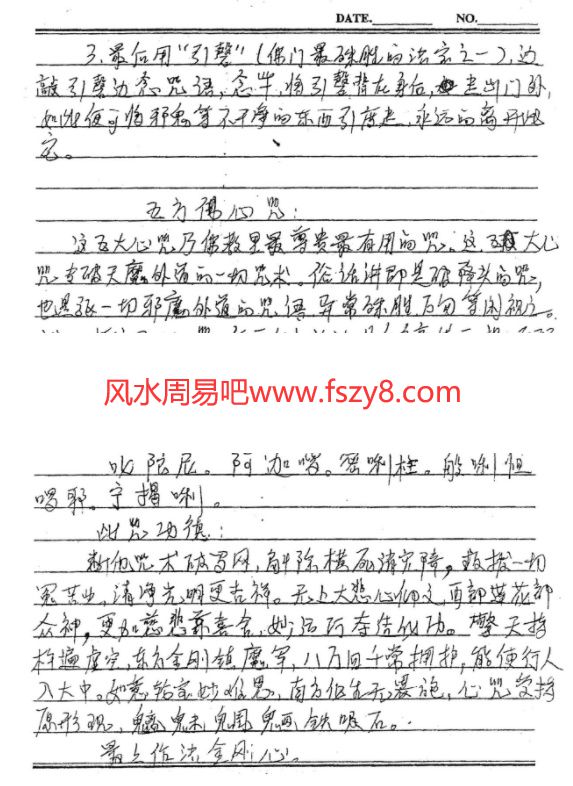 DATE. NO.
3、最后用"引磬"(佛门最殊胜的法宝之一),边
敲引磬边念咒语,念毕,将引磬背在身后,走出门外,
如此便可将邪鬼等不干净的东西引度走,永远的离开此
宅。
五方佛心咒:
这五大心咒乃佛教里最尊贵最有用的咒。这五大心
咒专破天魔外道的一切咒术。俗话讲即是破降头的咒,
也是破一切邪魔外道的咒语 异常殊胜 万勿等闲视之。
风水周易吧www.fszy8.com
吹陀尼。阿迦嚐。密唎柱。般唎怛
喝耶。宁揭唎。
此咒功德:
断他咒术破罗网,解除横死诸灾障,救拔一切
冤苦业,清净光明更吉祥。无上大慈心,再部莲花部
众神,更加慈悲兼喜舍,妙法巧夺造化功。擎天持
柱遍虚空,东方金刚镇魔军,八万四千常拥护,能使行人
入大中。如意轮宝妙难思,南方化生无畏,心咒受持
原形现,魑魅魍魉铁吸石。
最上作法金刚心。